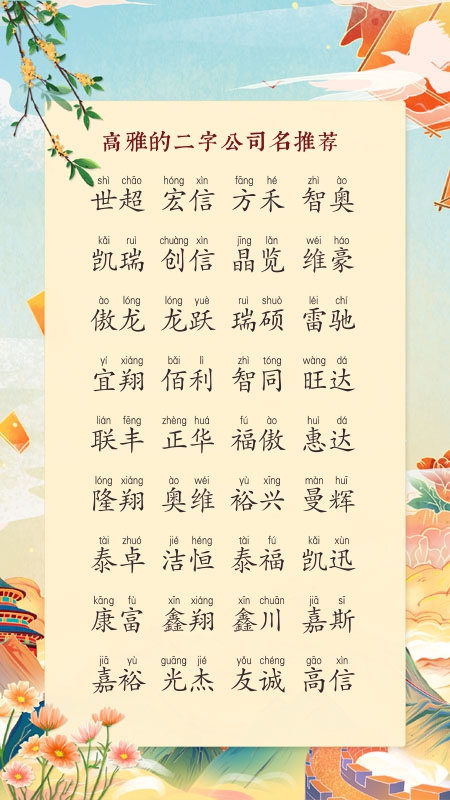 高雅的二字公司名推荐
shì chāo hóng xìn fāng hé zhì ào
世超 宏信 方禾 智奥
kǎi ruì chuàng xìn jīng lǎn wéi háo
凯瑞 创信 晶览 维豪
ào lóng lóng yuè ruì shuò léi chí
傲龙 龙跃 瑞硕 雷驰
yí xiáng bǎi lì zhì tóng wàng dá
宜翔 佰利 智同 旺达
lián fēng zhèng huá fú ào huì dá
联丰 正华 福傲 惠达
lóng xiáng ào wéi yù xīng màn huī
隆翔 奥维 裕兴 曼辉
tài zhuó jié héng tài fú kǎi xùn
泰卓 洁恒 泰福 凯迅
kāng fù xīn xiáng xīn chuān jiā sī
康富 鑫翔 鑫川 嘉斯
jiā yù guāng jié yǒu chéng gāo xìn
嘉裕 光杰 友诚 高信